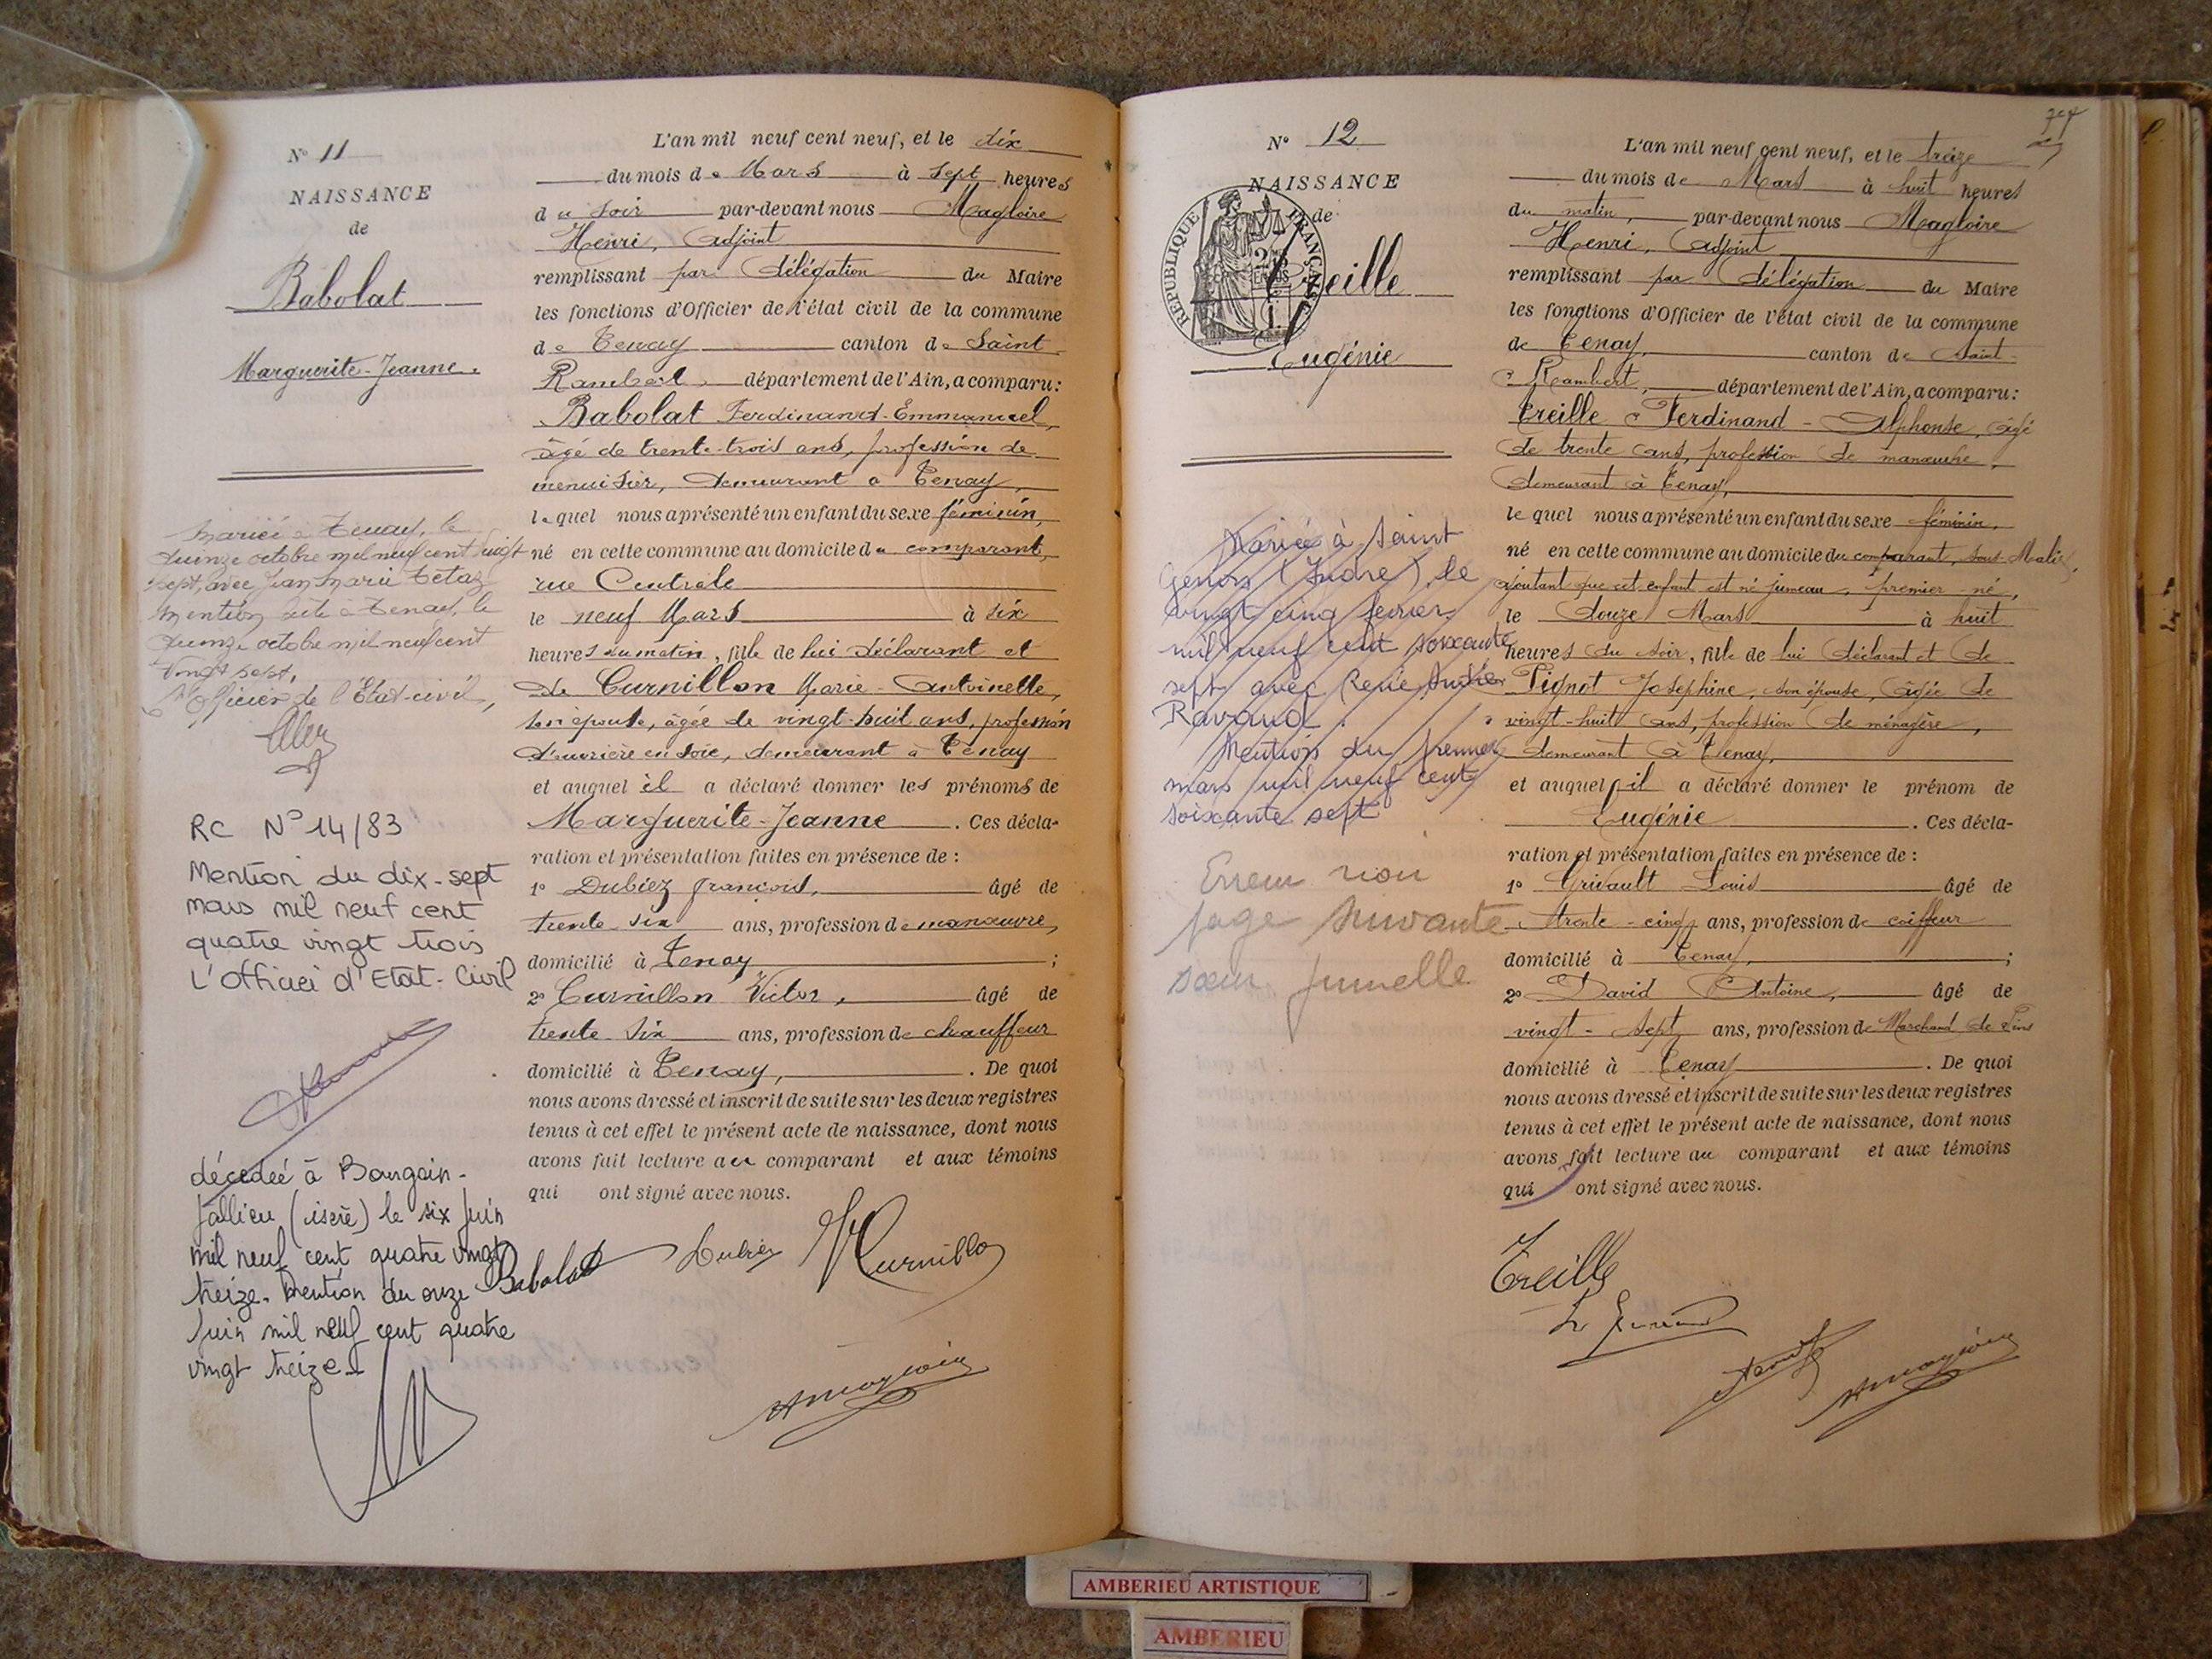 N° 11
NAISSANCE
de
Babolat
Marguerite-Jeanne.
Mariée à Tenay, le
quinze octobre mil neuf cent vingt
sept, avec Jean Marie Tétaz
Mention faite à Tenay, le
quinze octobre mil neuf cent
vingt sept,
L'officier de l'État-civil,
RC N° 14/83
Mention du dix-sept
mars mil neuf cent
quatre vingt trois
L'Officier d'Etat-Civil
décédée à Bourgoin-
Jallieu (isère) le six Juin
mil neuf cent quatre vingt
treize. Mention du onze
Juin mil neuf cent quatre
vingt treize.
L'an mil neuf cent neuf, et le dix
du mois de Mars à sept heures
du soir par-devant nous Magloire
Henri, Adjoint
remplissant par délégation du Maire
les fonctions d'Officier de l'état civil de la commune
de Tenay canton de Saint-
Rambert, département de l'Ain, a comparu:
Babolat Ferdinand-Emmanuel,
âgé de trente-trois ans, profession de
menuisier, demeurant à Tenay,
lequel nous a présenté un enfant du sexe féminin,
né en cette commune au domicile du comparant,
rue Centrale
le neuf Mars à six
heures du matin, fille de lui déclarant et
de Curnillon Marie-Antoinette,
son épouse, âgée de vingt-huit ans, profession
d'ouvrière en soie, demeurant à Tenay
et auquel il a déclaré donner les prénoms de
Marguerite-Jeanne. Ces décla-
ration et présentation faites en présence de :
1° Dubiez François, âgé de
trente six ans, profession de manœuvre,
domicilié à Tenay ;
2° Curnillon Victor, âgé de
trente six ans, profession de chauffeur
domicilié à Tenay, . De quoi
nous avons dressé et inscrit de suite sur les deux registres
tenus à cet effet le présent acte de naissance, dont nous
avons fait lecture au comparant et aux témoins
qui ont signé avec nous.
Babolat Dubiez VCurnillon
HMagloire
N° 12
NAISSANCE
de
RÉPUBLIQUE FRANÇAISE
Treille
Eugénie
Mariée à Saint
Genou (Indre) le
vingt cinq février
mil neuf cent soixante
sept avec René André
Ravaud.
Mention du premier
mars mil neuf cent
soixante sept
Erreur voir
page suivante
sœur jumelle
L'an mil neuf cent neuf, et le treize
du mois de Mars à huit heures
du matin, par-devant nous Magloire
Henri, Adjoint
remplissant par délégation du Maire
les fonctions d'Officier de l'état civil de la commune
de Tenay, canton de Saint-
Rambert, département de l'Ain, a comparu:
Treille Ferdinand-Alphonse, âgé
de trente ans, profession de manœuvre,
demeurant à Tenay,
lequel nous a présenté un enfant du sexe féminin,
né en cette commune au domicile du comparant,
ajoutant que cet enfant est né jumeau, premier-né,
le douze Mars à huit
heures du soir, fille de lui déclarant et de
Pignot Joséphine, son épouse, âgée de
vingt-huit ans, profession de ménagère,
demeurant à Tenay,
et auquel il a déclaré donner le prénom de
Eugénie. Ces décla-
ration et présentation faites en présence de :
1° Grivault Louis âgé de
trente-cinq ans, profession de coiffeur
domicilié à Tenay, ;
2° David Antoine, âgé de
vingt-sept ans, profession de Marchand de Vins
domicilié à Tenay . De quoi
nous avons dressé et inscrit de suite sur les deux registres
tenus à cet effet le présent acte de naissance, dont nous
avons fait lecture au comparant et aux témoins
qui ont signé avec nous.
Treille
HMagloire
AMBERIEU ARTISTIQUE
AMBERIEU